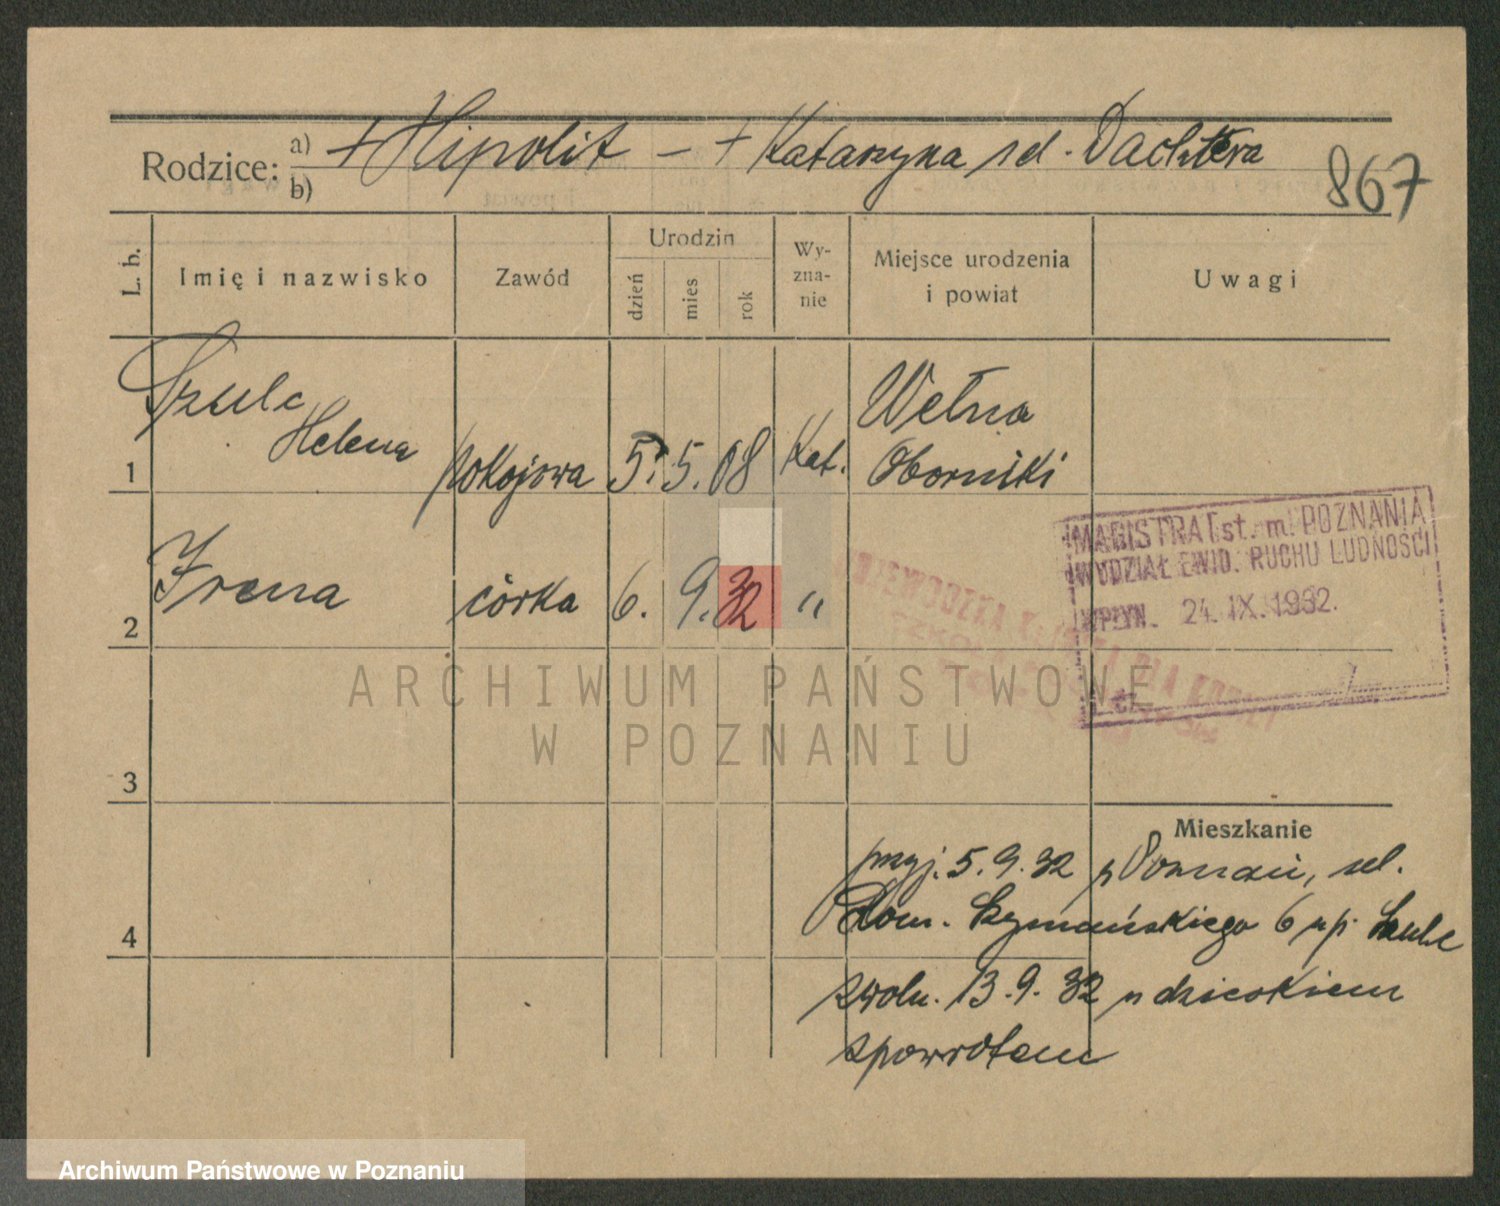 Rodzice: a) + Hipolit - + Katarzyna zd. Dachtera
b)
867
L. b.
Imię i nazwisko
Zawód
Urodzin
dzień
mies
rok
Wy-
zna-
nie
Miejsce urodzenia
i powiat
Uwagi
1 Szulc Helena pokojowa 5. 5. 08 Kat. Wełna
Oborniki
2 Irena córka 6. 9. 32 "
MAGISTRAT st. m. POZNANIA
WYDZIAŁ EWID. RUCHU LUDNOŚCI
WPŁYN. 24. IX. 1932.
ARCHIWUM PAŃSTWOWE
W POZNANIU
3
Mieszkanie
przyj. 5. 9. 32 z Poznań, ul.
4
Dom. Szymańskiego 6 u p. Szulc
zwoln. 13. 9. 32 z dzieckiem
spowrotem
Archiwum Państwowe w Poznaniu